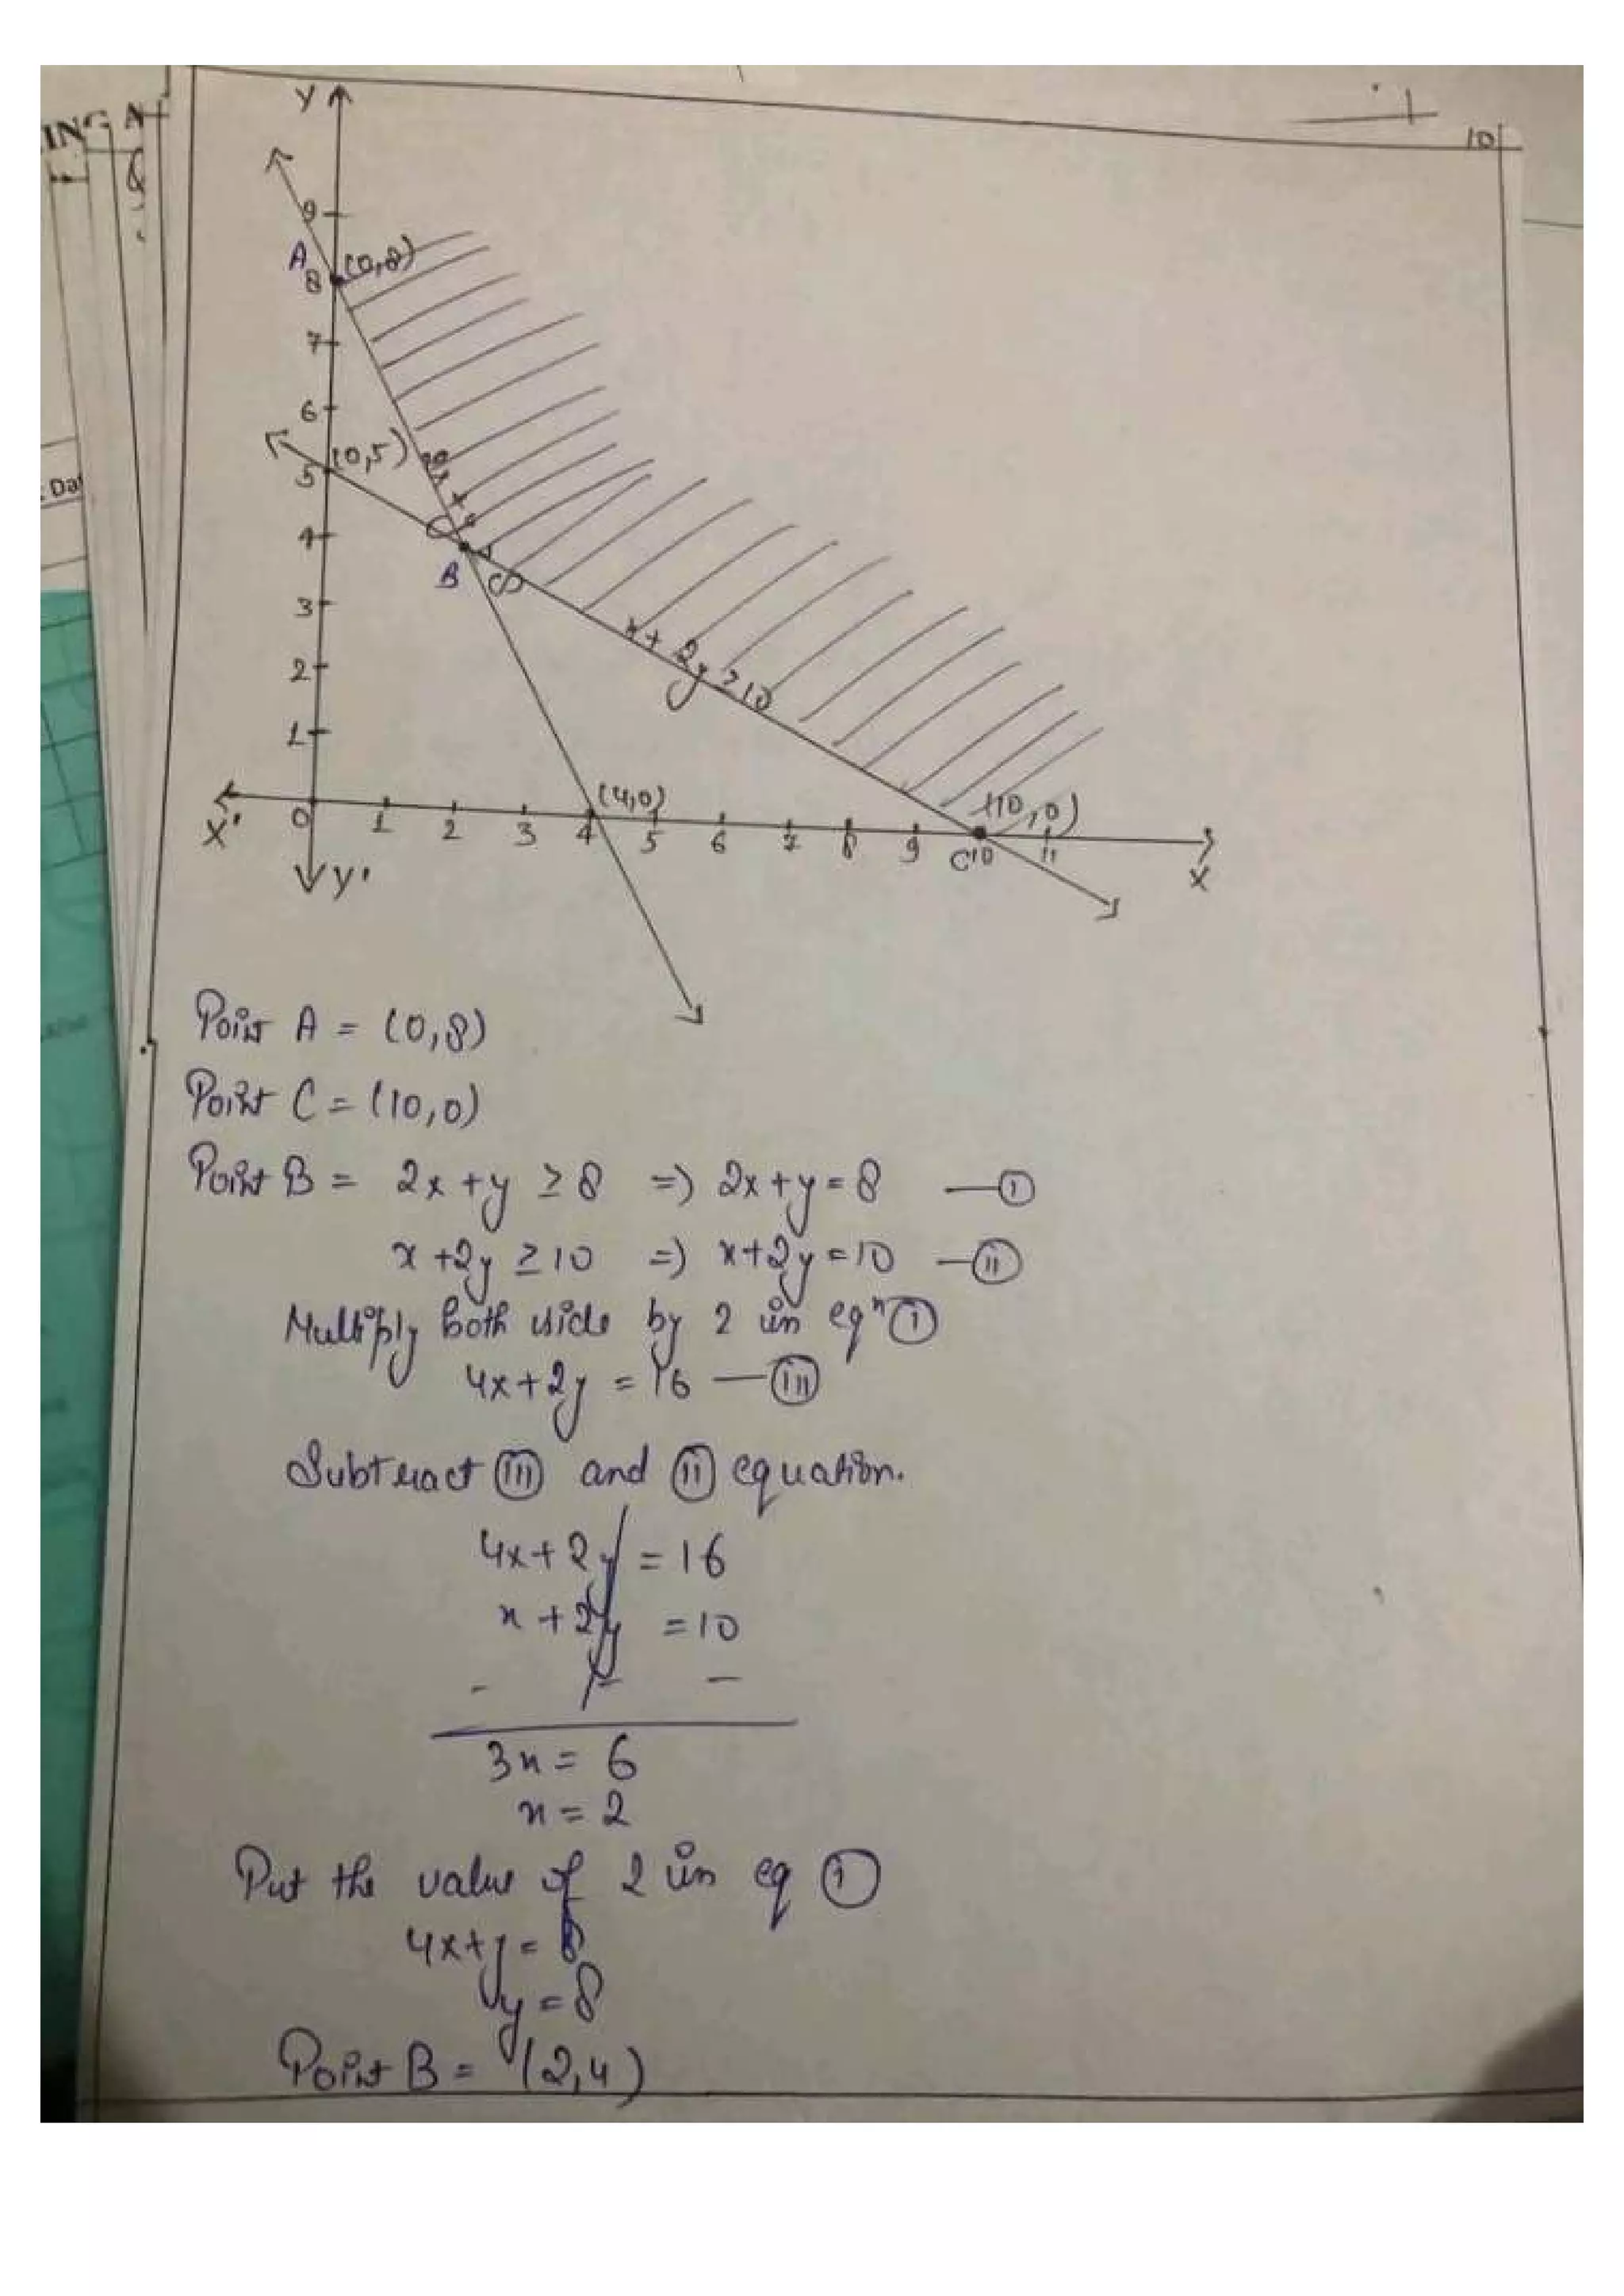 ING
10
Y
9
A
8
(0,8)
7
6
(0,5)
5
4
B
3
x + 2y ≥ 10
2
1
(4,0)
(10,0)
X'
0
1
2
3
4
5
6
7
8
9
C10
11
X
Y'
: Da
Point A = (0,8)
Point C = (10,0)
Point B = 2x + y ≥ 8 => 2x + y = 8 — (i)
x + 2y ≥ 10 => x + 2y = 10 — (ii)
Multiply both side by 2 in eqⁿ (i)
4x + 2y = 16 — (iii)
Subtract (iii) and (ii) equation.
4x + 2y = 16
x + 2y = 10
- - -
3x = 6
x = 2
Put the value of 2 in eq (i)
4x + y = 8
y = 8
Point B = (2,4)